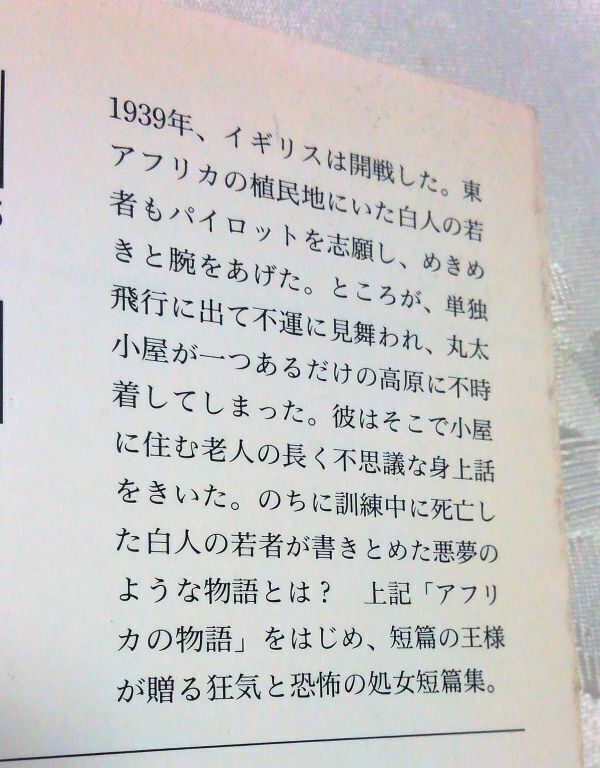 1939年、イギリスは開戦した。東
アフリカの植民地にいた白人の若
者もパイロットを志願し、めきめ
きと腕をあげた。ところが、単独
飛行に出て不運に見舞われ、丸太
小屋が一つあるだけの高原に不時
着してしまった。彼はそこで小屋
に住む老人の長く不思議な身上話
をきいた。のちに訓練中に死亡し
た白人の若者が書きとめた悪夢の
ような物語とは？　上記「アフリ
カの物語」をはじめ、短篇の王様
が贈る狂気と恐怖の処女短篇集。